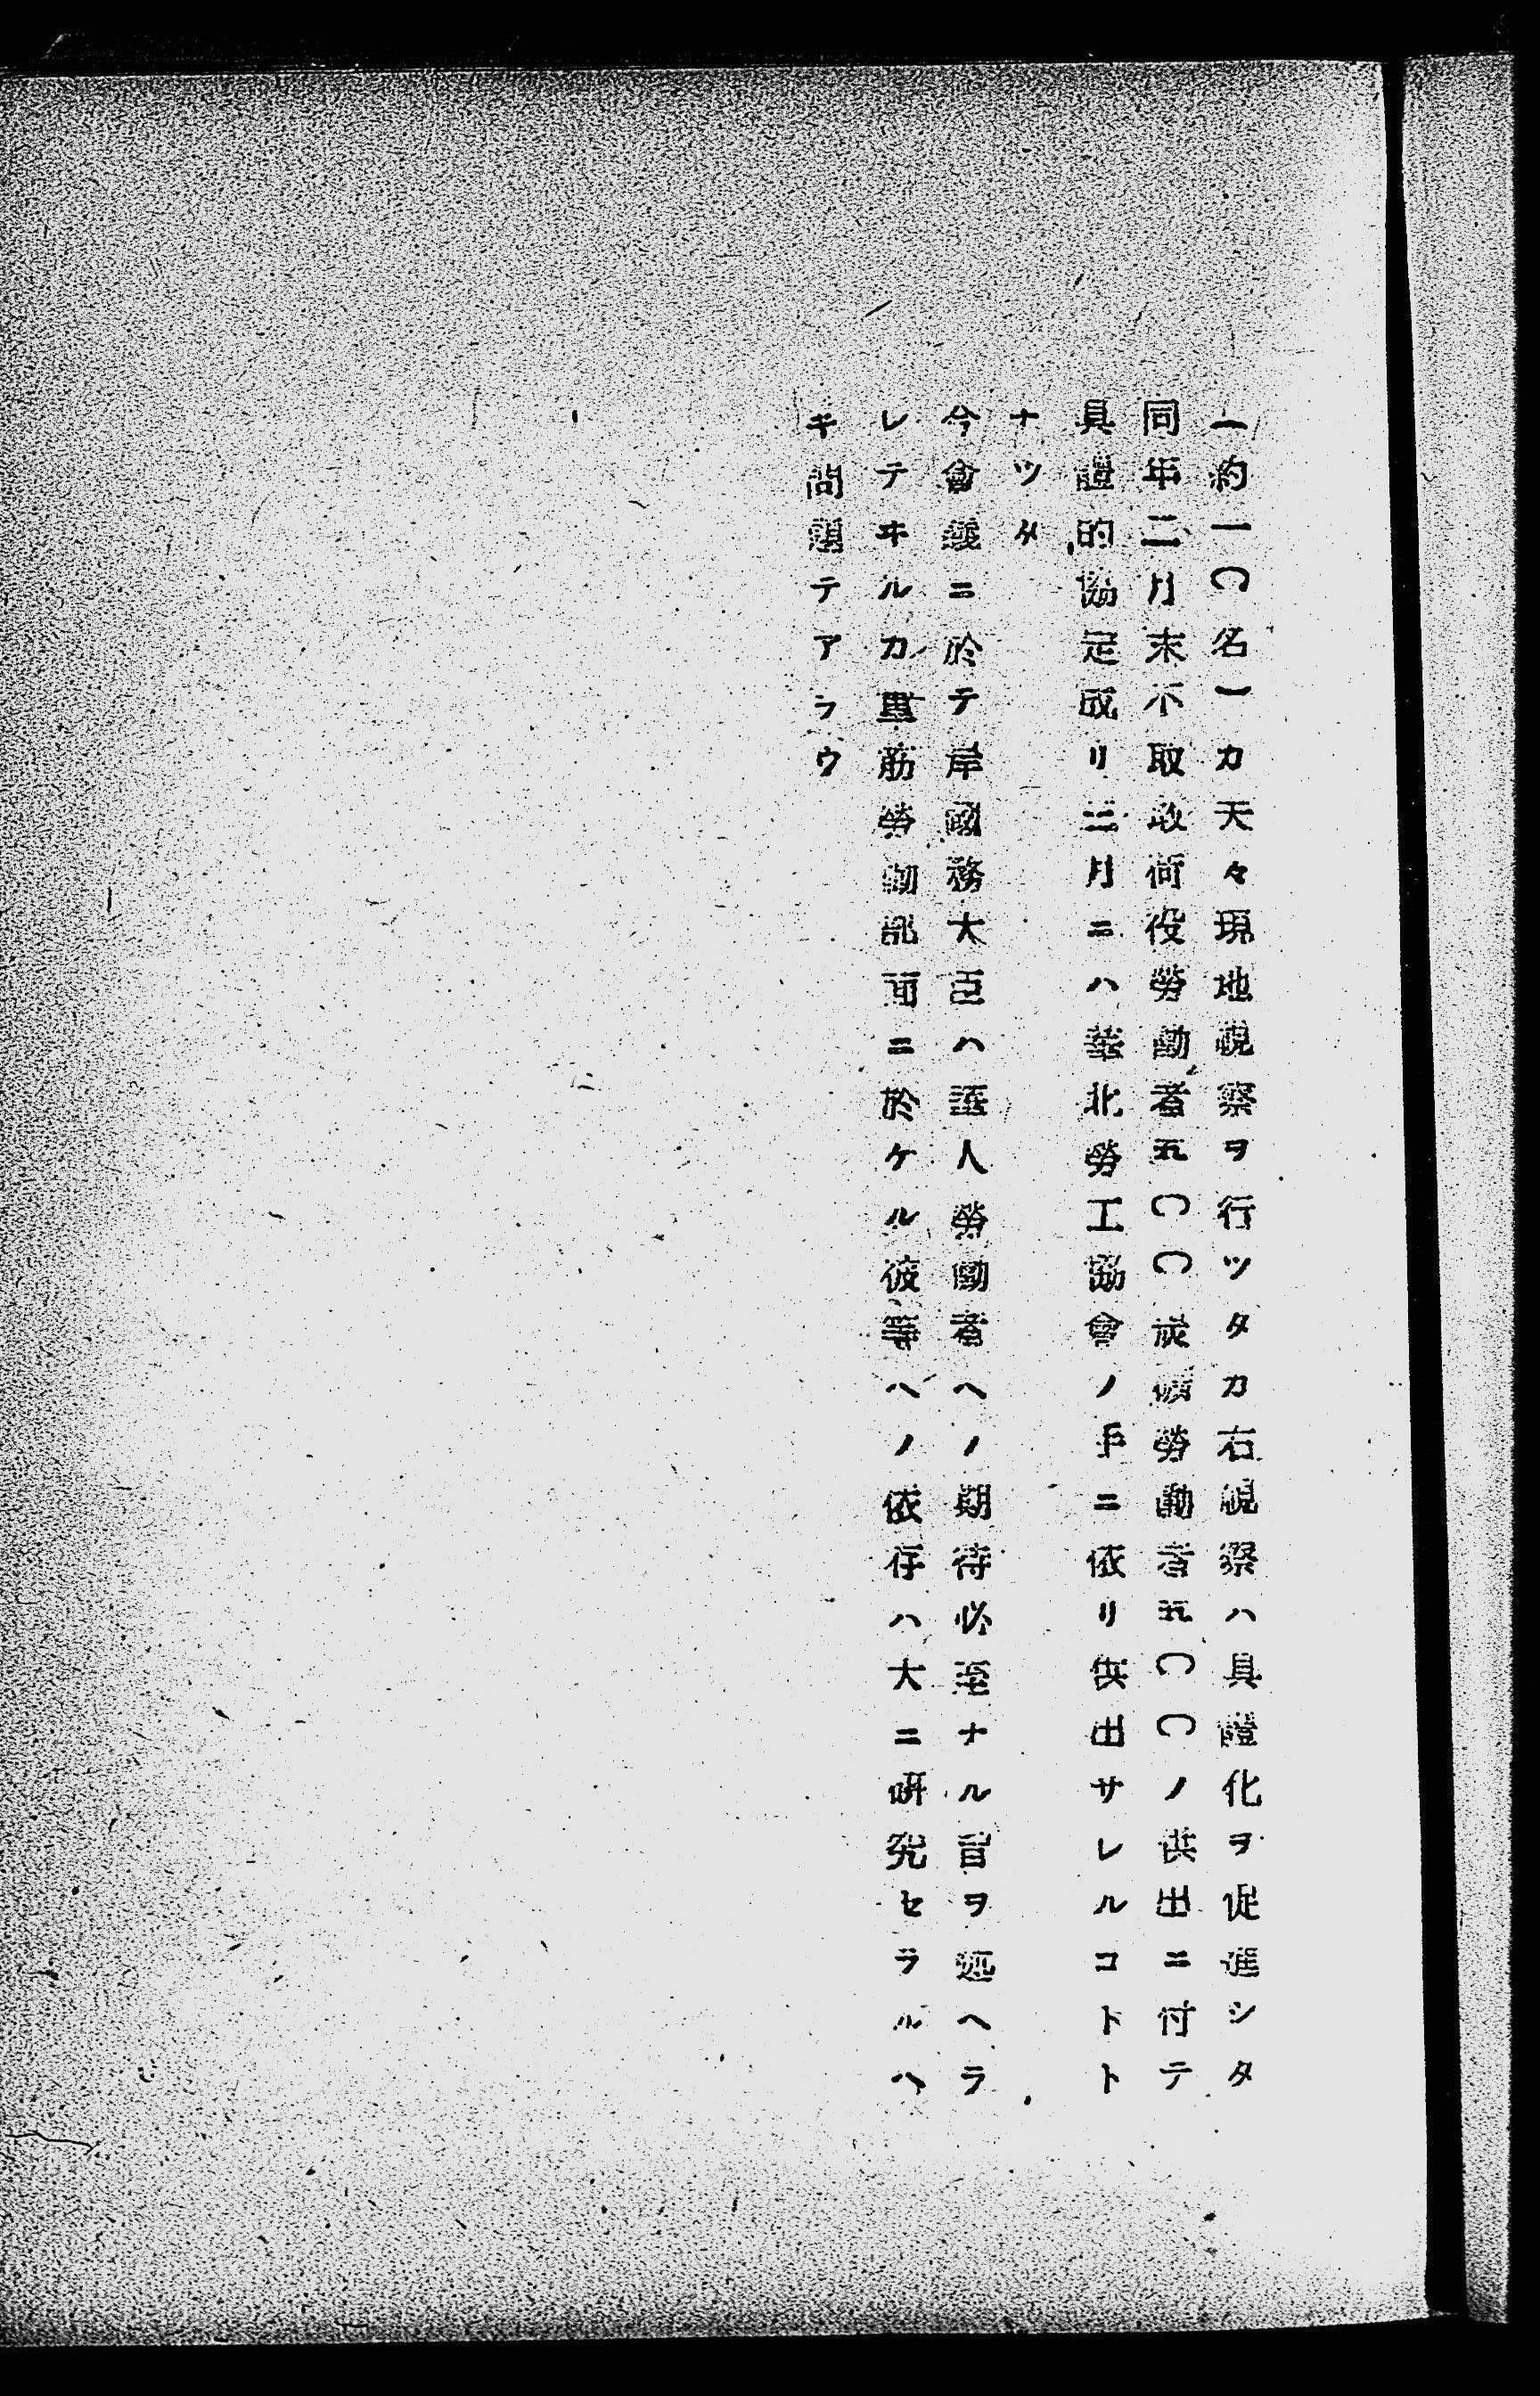 (約一〇名)カ夫々現地視察ヲ行ツタカ右視察ハ具體化ヲ促進シタ
同年二月末不取敢荷役勞働者五〇〇炭礦勞働者五〇〇ノ供出ニ付テ
具體的協定成リ三月ニハ華北勞工協會ノ手ニ依リ供出サレルコトト
ナツタ
今會議ニ於テ岸國務大臣ハ華人勞働者ヘノ期待必至ナル旨ヲ述ヘラ
レテヰルカ重筋勞働部面ニ於ケル彼等ヘノ依存ハ大ニ研究セラルヘ
キ問題テアラウ